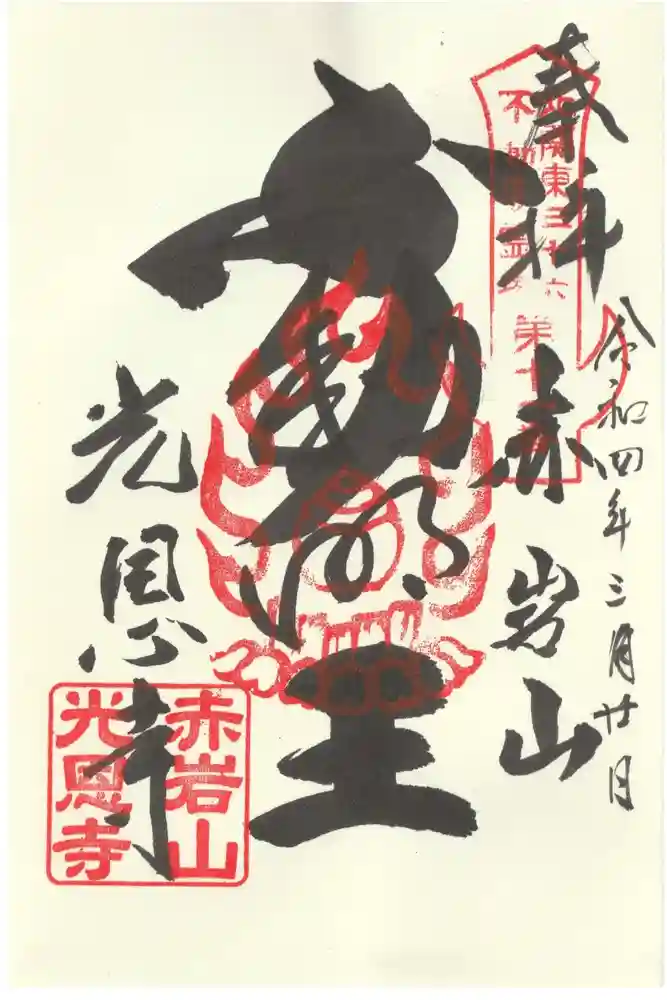 令和四年三月廿日
奉拝
赤岩山
不動明王
光恩寺
北関東三十六
不動尊霊場
第十
赤岩山
光恩寺